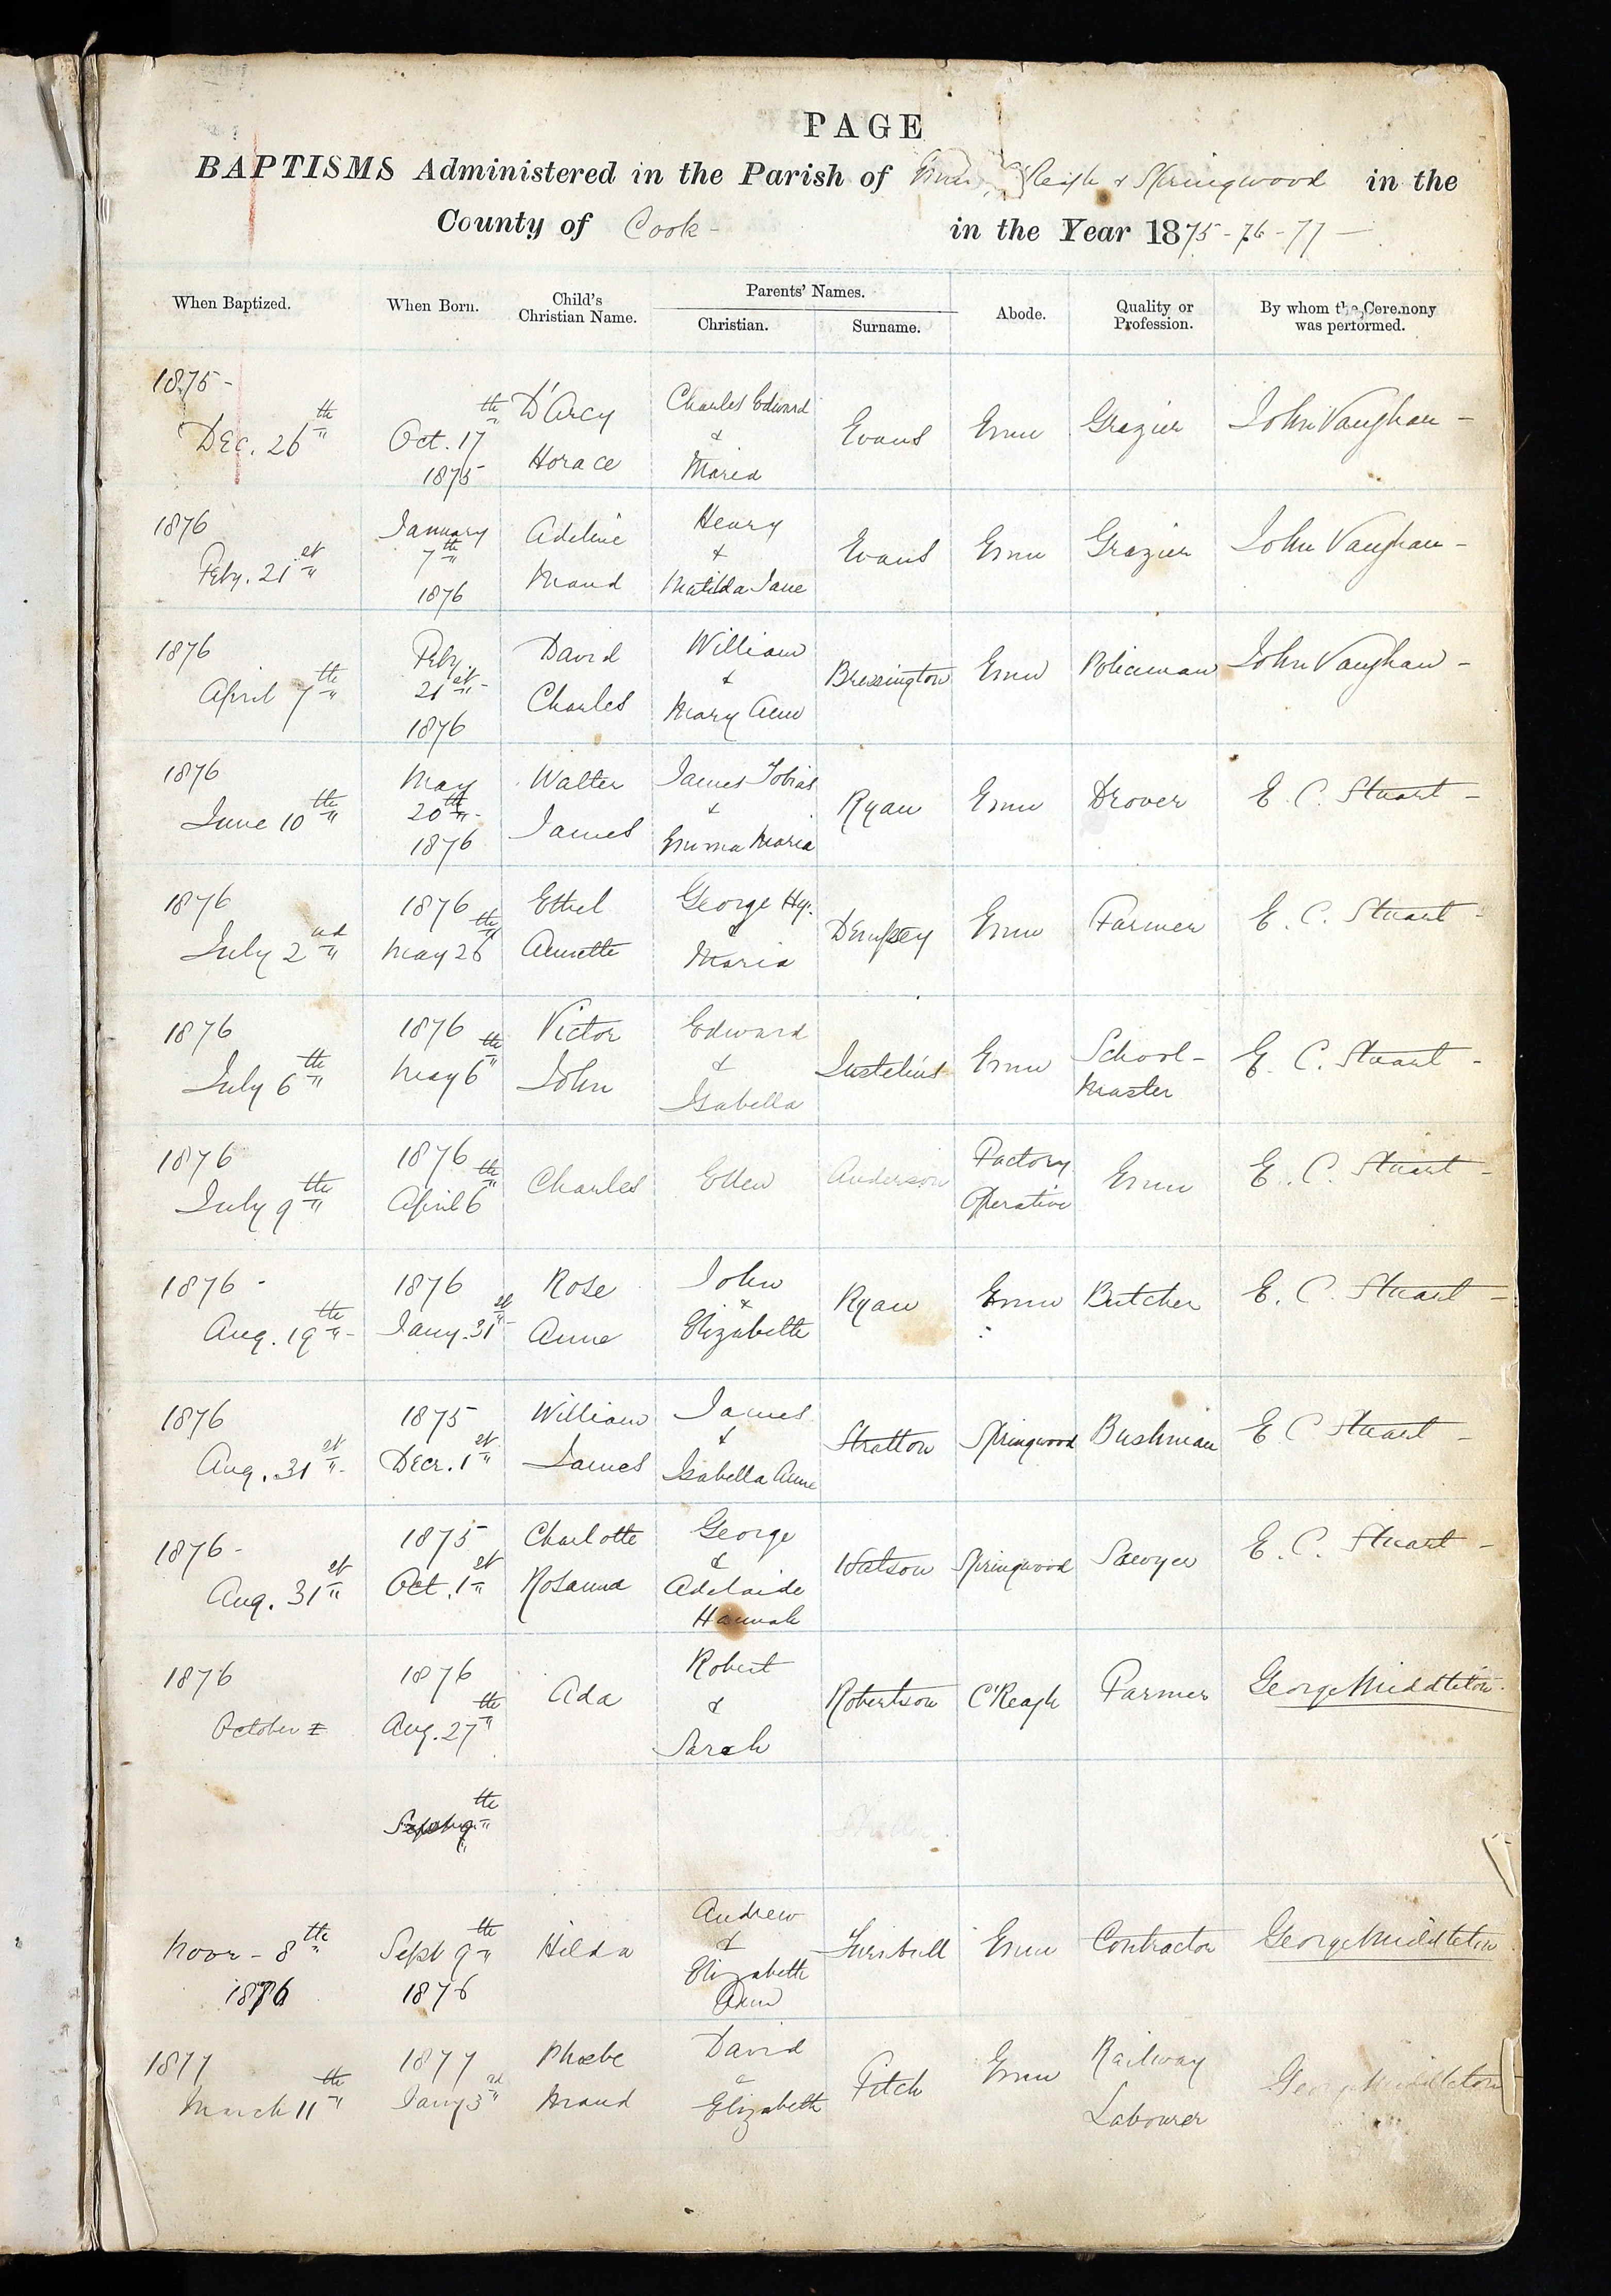 PAGE
BAPTISMS Administered in the Parish of Emu, C'Reagh & Springwood in the
County of Cook - in the Year 1875-76-77-
When Baptized. When Born. Child's Christian Name. Parents' Names. Christian. Surname. Abode. Quality or Profession. By whom the Ceremony was performed.
1875-
Dec. 26th Oct. 17th 1875 D'Arcy Horace Charles Edward & Maria Evans Emu Grazier John Vaughan -
1876
Feby. 21st January 7th 1876 Adeline Maud Henry & Matilda Jane Evans Emu Grazier John Vaughan -
1876
April 7th Feby. 21st - 1876 David Charles William & Mary Ann Bressington Emu Policeman John Vaughan -
1876
June 10th May 20th - 1876 Walter James James Tobias & Emma Maria Ryan Emu Drover E. C. Stuart -
1876
July 2nd 1876 May 26th Ethel Annette George Hy. & Maria Dempsey Emu Farmer E. C. Stuart -
1876
July 6th 1876 May 6th Victor John Edward & Isabella Emu School-Master E. C. Stuart -
1876
July 9th 1876 April 6th Charles Ellen Anderson Factory Operative Emu E. C. Stuart -
1876 -
Aug. 19th - 1876 Jany. 31st - Rose Anne John & Elizabeth Ryan Emu Butcher E. C. Stuart -
1876
Aug. 31st - 1875 Decr. 1st William James James & Isabella Anne Stratton Springwood Bushman E C Stuart -
1876 -
Aug. 31st 1875 Oct. 1st Charlotte Rosanna George & Adelaide Hannah Watson Springwood Sawyer E. C. Stuart -
1876
October 1876 Aug. 27th Ada Robert & Sarah Robertson C'Reagh Farmer George Middleton.
Septbr 9th
Novr - 8th 1876 Sept 9th 1876 Hilda Andrew & Elizabeth Ann Turnbull Emu Contractor George Middleton
1877
March 11th 1877 Jany 3rd Phoebe Maud David & Elizabeth Fitch Emu Railway Labourer George Middleton